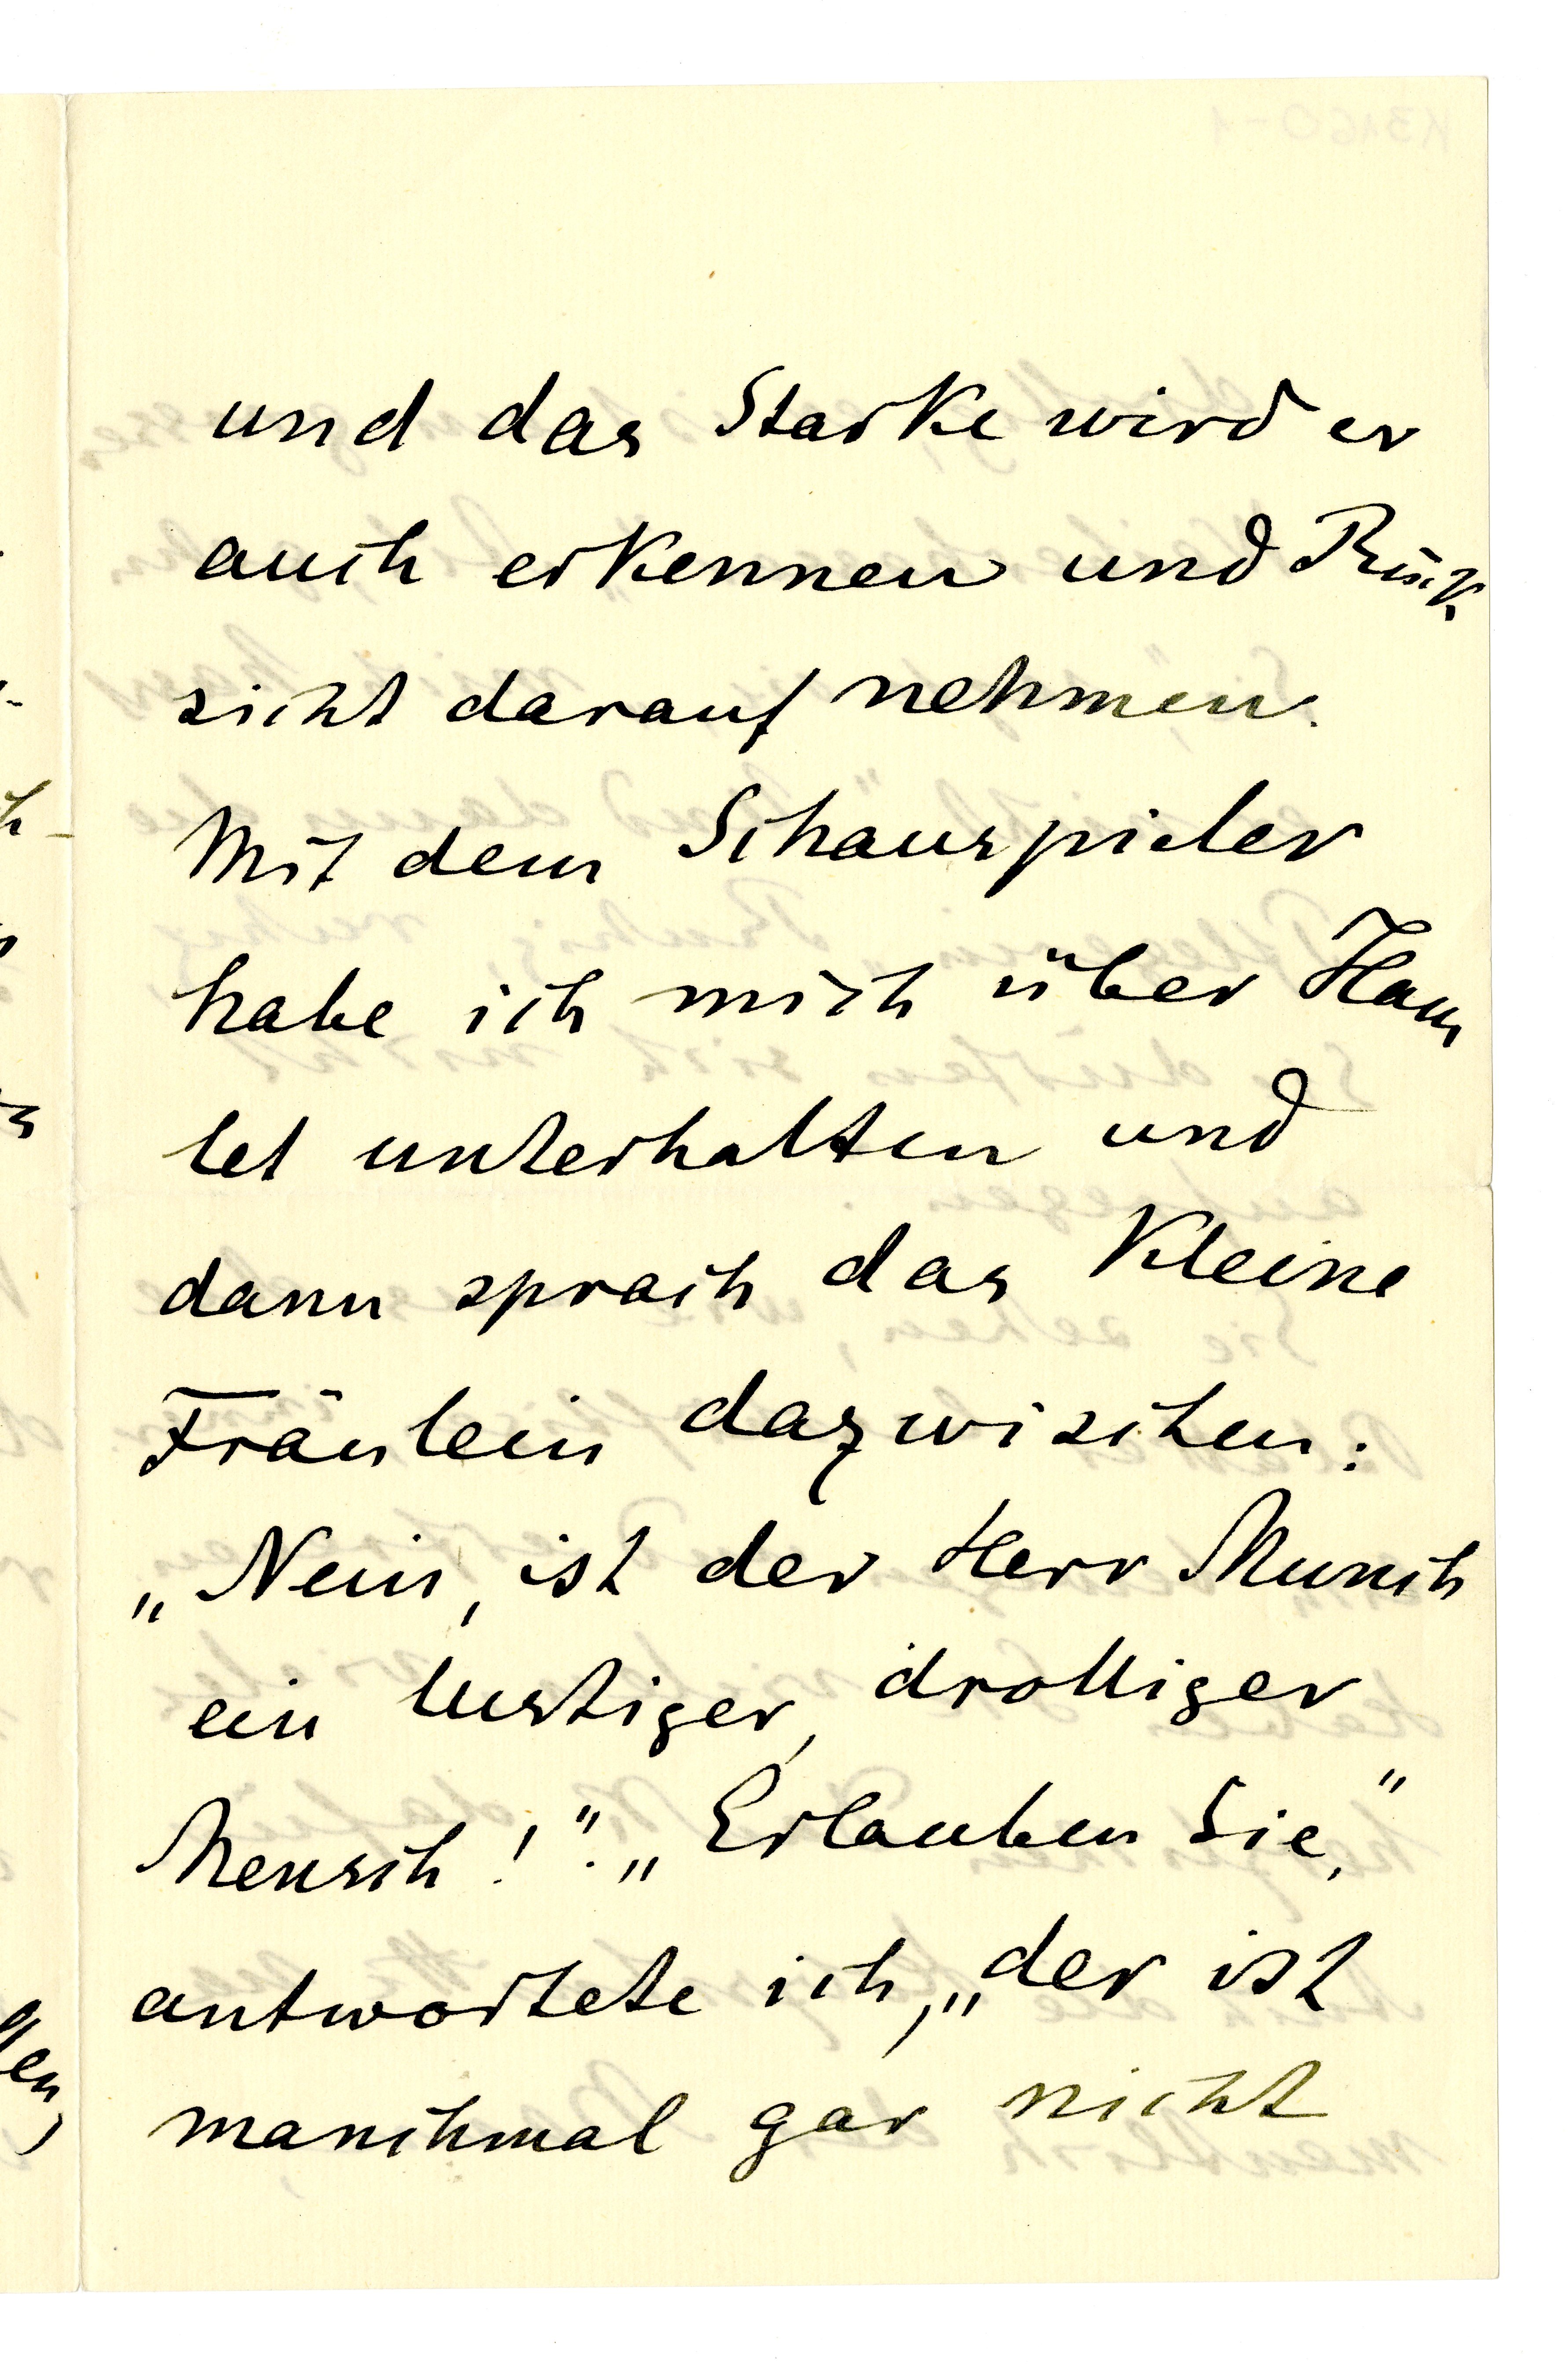 und das Starke wird er
auch erkennen und Rück
sicht darauf nehmen.
Mit dem Schauspieler
habe ich mich über Ham
let unterhalten und
dann sprach das Kleine
Fräulein dazwischen:
„Nein, ist der Herr Munch
ein lustiger, drolliger
Mensch!". „Erlauben Sie,"
antwortete ich, „der ist
manchmal gar nicht